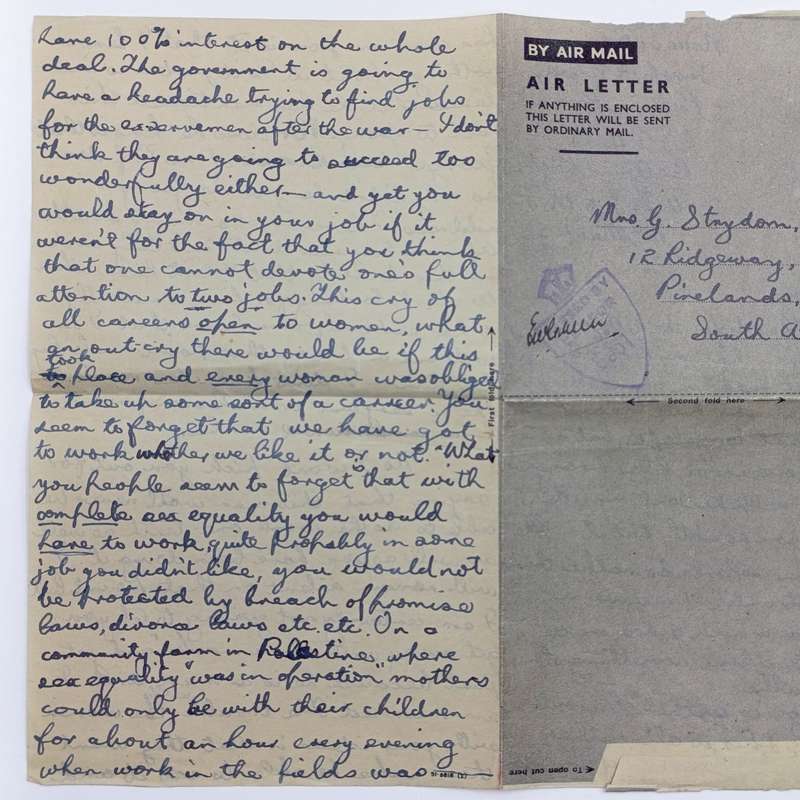 have 100% interest on the whole
deal. The government is going to
have a headache trying to find jobs
for the exservemen after the war — I don't
think they are going to succeed too
wonderfully either — and yet you
would stay on in your job if it
weren't for the fact that you think
that one cannot devote one's full
attention to two jobs. This cry of
all careers open to women, what
an out-cry there would be if this
took place and every woman was obliged
to take up some sort of a career. You
seem to forget that we have got
to work whether we like it or not. "What
you people seem to forget" that with
complete sex equality you would
have to work, quite probably in some
job you didn't like, you would not
be protected by breach of promise
laws, divorce laws etc. etc. On a
community farm in Palestine, where
sex equality "was in operation" mothers
could only be with their children
for about an hour every evening
when work in the fields was
BY AIR MAIL
AIR LETTER
IF ANYTHING IS ENCLOSED
THIS LETTER WILL BE SENT
BY ORDINARY MAIL.
Mrs. G. Strydom,
12 Ridgeway,
Pinelands,
South A
First fold here
Second fold here
To open cut here